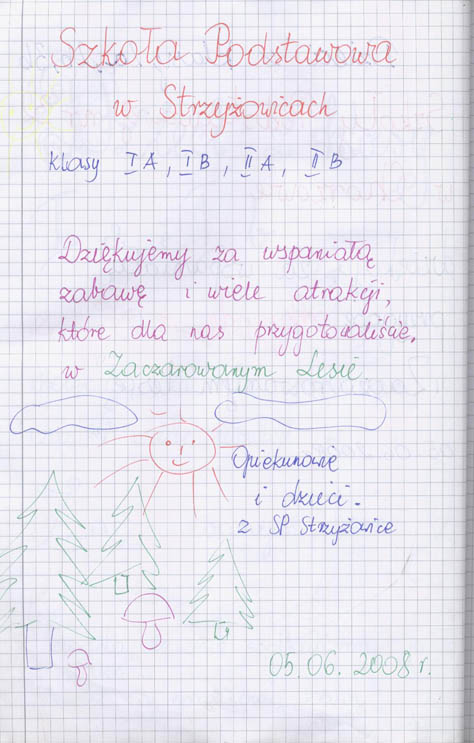 Szkoła Podstawowa
w Strzyżowicach
klasy I A, I B, II A, II B
Dziękujemy za wspaniałą
zabawę i wiele atrakcji,
które dla nas przygotowaliście,
w Zaczarowanym Lesie
Opiekunowie
i dzieci.
z SP Strzyżowice
05.06.2008 r.